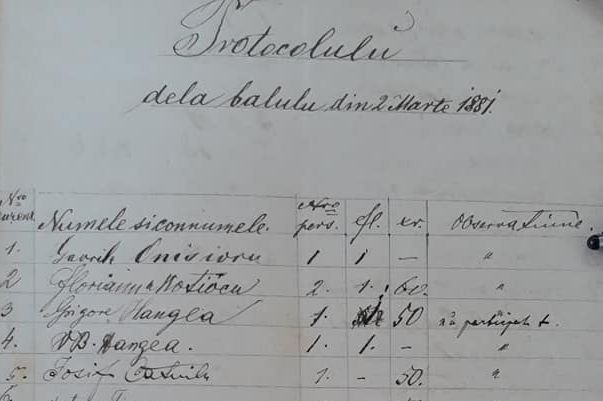 Protocolulŭ
dela balulu din 2 Marte 1881.
Nro curent. Numele si connumele. Nro pers. fl. xr. Observatiune.
1. Gavrilŭ Onisioru 1 1 — "
2 Floriann 2. 1. 60. "
3 Grigore Hangea 1. 50
4. V.B. Hangea. 1. 1. — "
5. Iosif 1. — 50. "